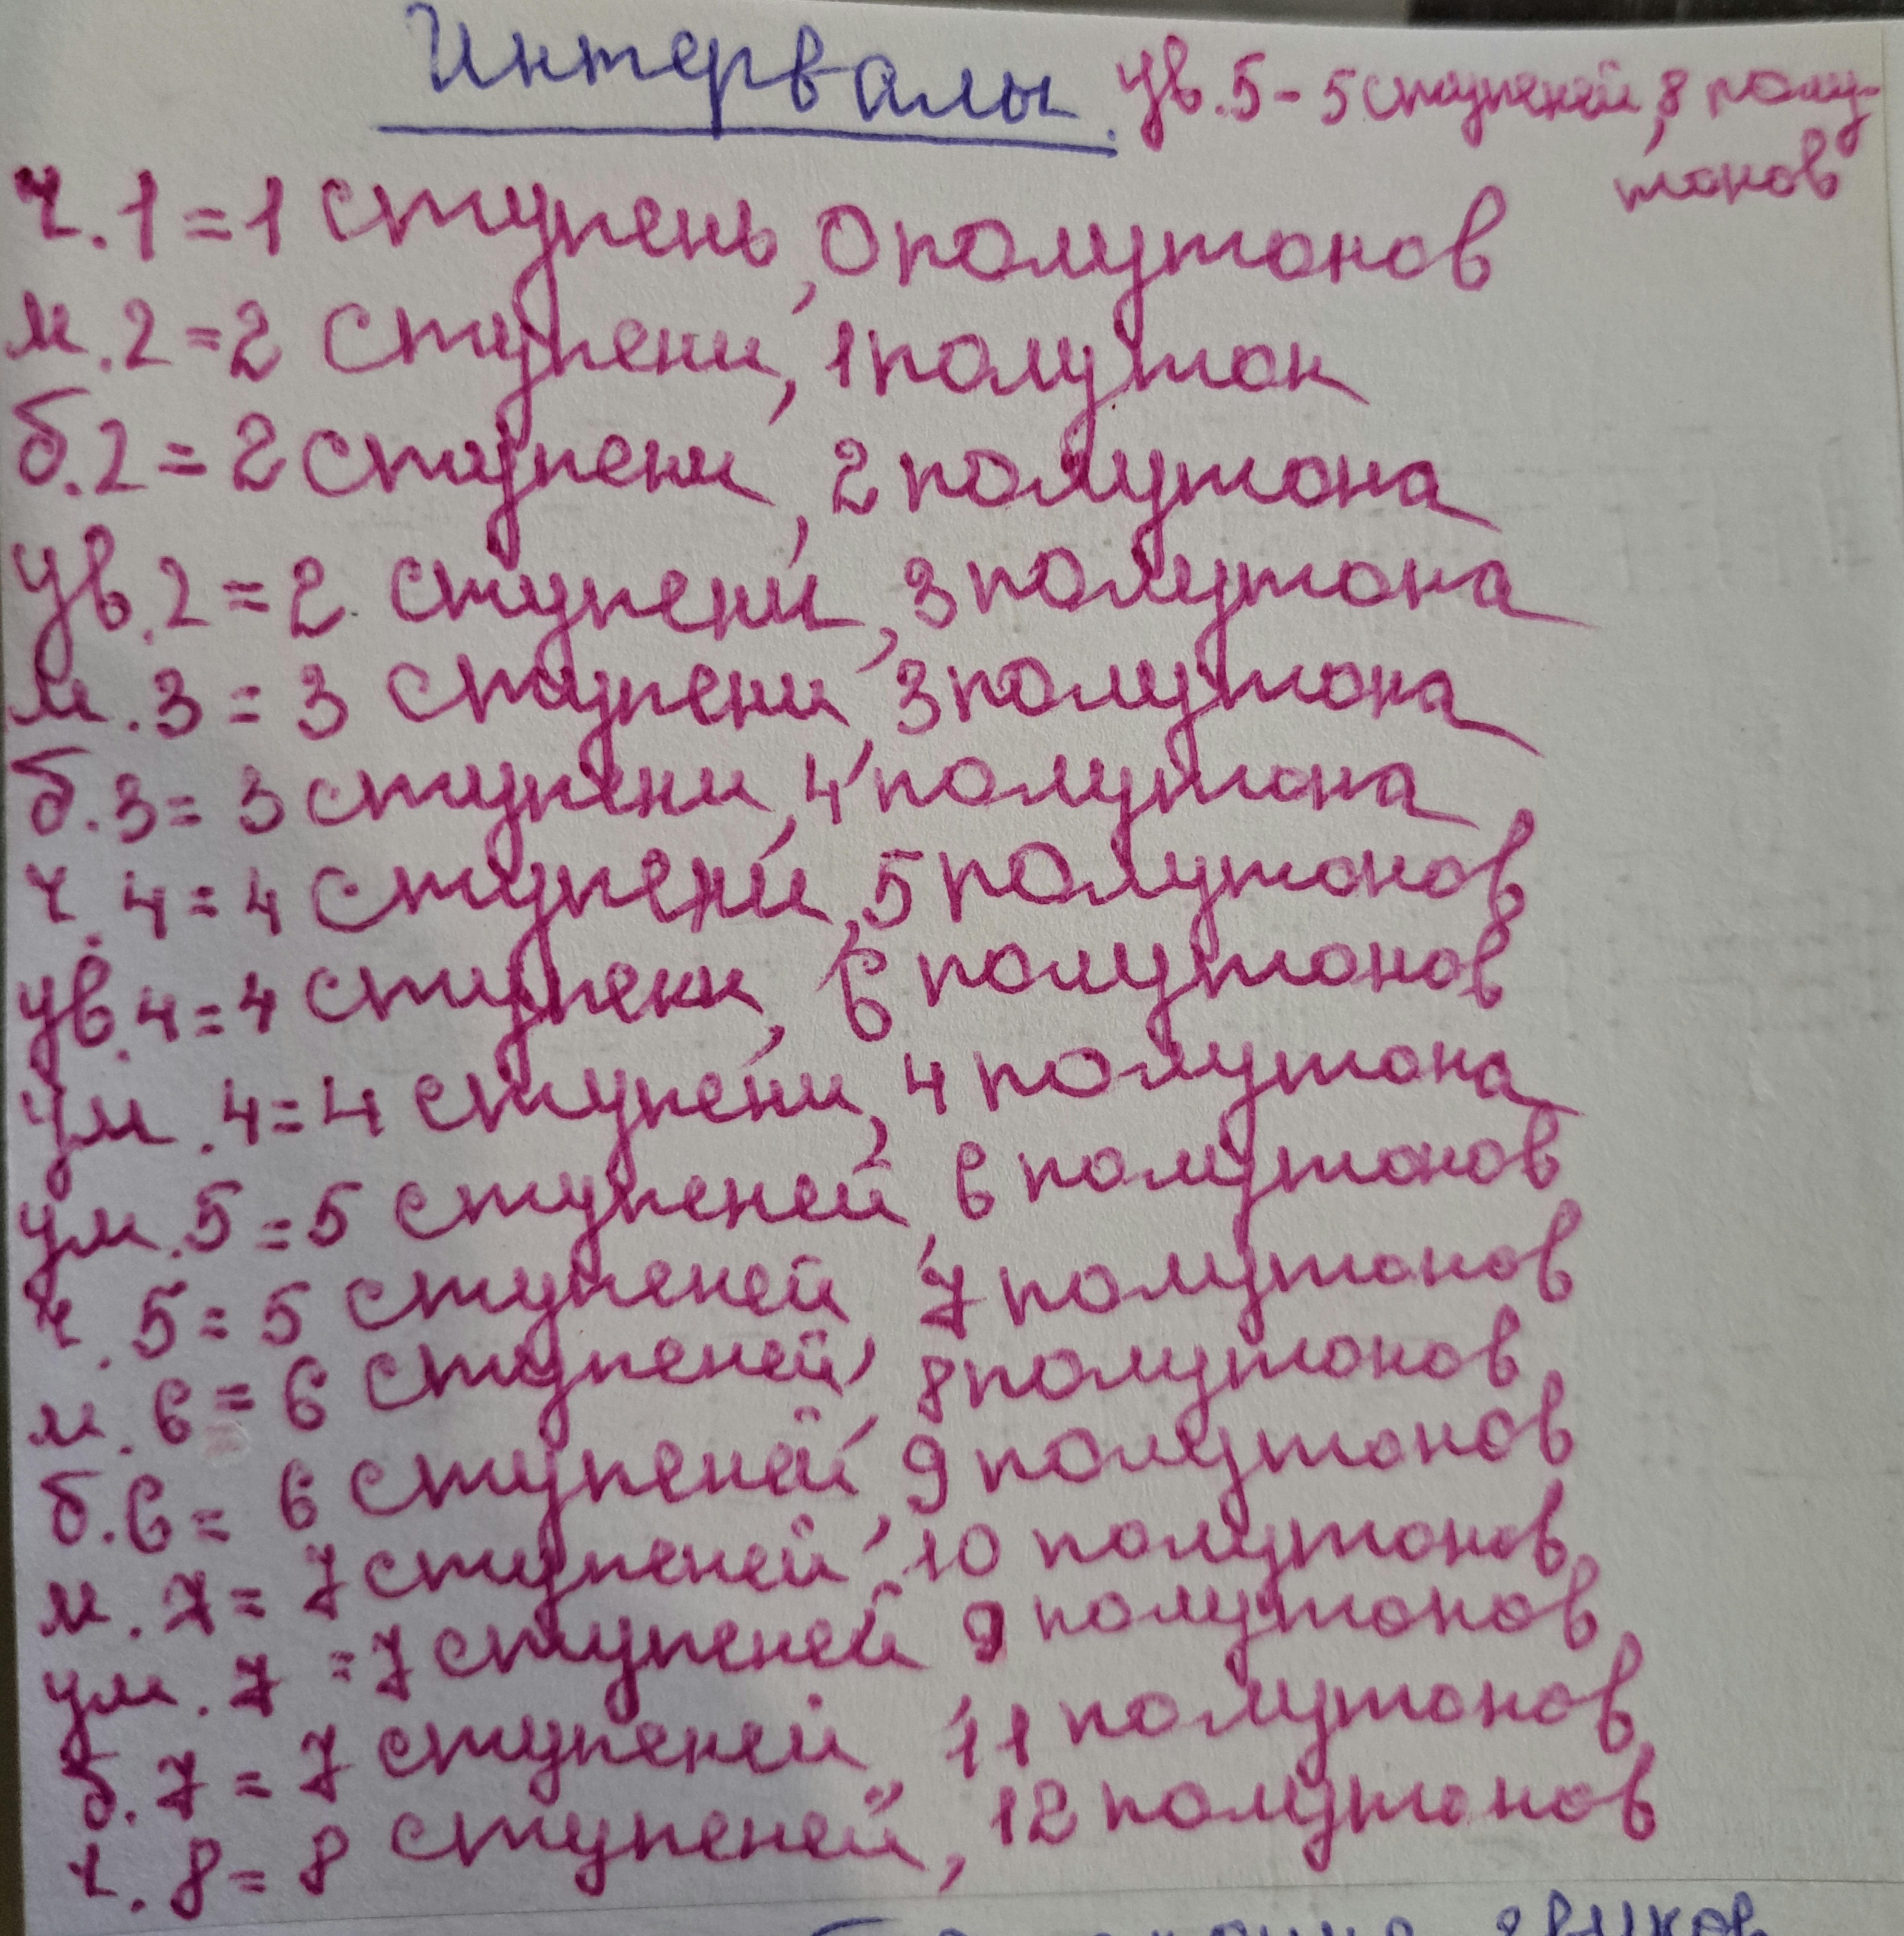 Интервалы.
ув.5 - 5 ступеней, 8 полу-
тонов
ч.1 = 1 ступень, 0 полутонов
м.2 = 2 ступени, 1 полутон
б.2 = 2 ступени, 2 полутона
ув.2 = 2 ступени, 3 полутона
м.3 = 3 ступени, 3 полутона
б.3 = 3 ступени, 4 полутона
ч.4 = 4 ступени, 5 полутонов
ув.4 = 4 ступени, 6 полутонов
ум.4 = 4 ступени, 4 полутона
ум.5 = 5 ступеней, 6 полутонов
ч.5 = 5 ступеней, 7 полутонов
м.6 = 6 ступеней, 8 полутонов
б.6 = 6 ступеней, 9 полутонов
м.7 = 7 ступеней, 10 полутонов
ум.7 = 7 ступеней 9 полутонов
б.7 = 7 ступеней, 11 полутонов
ч.8 = 8 ступеней, 12 полутонов
звуков